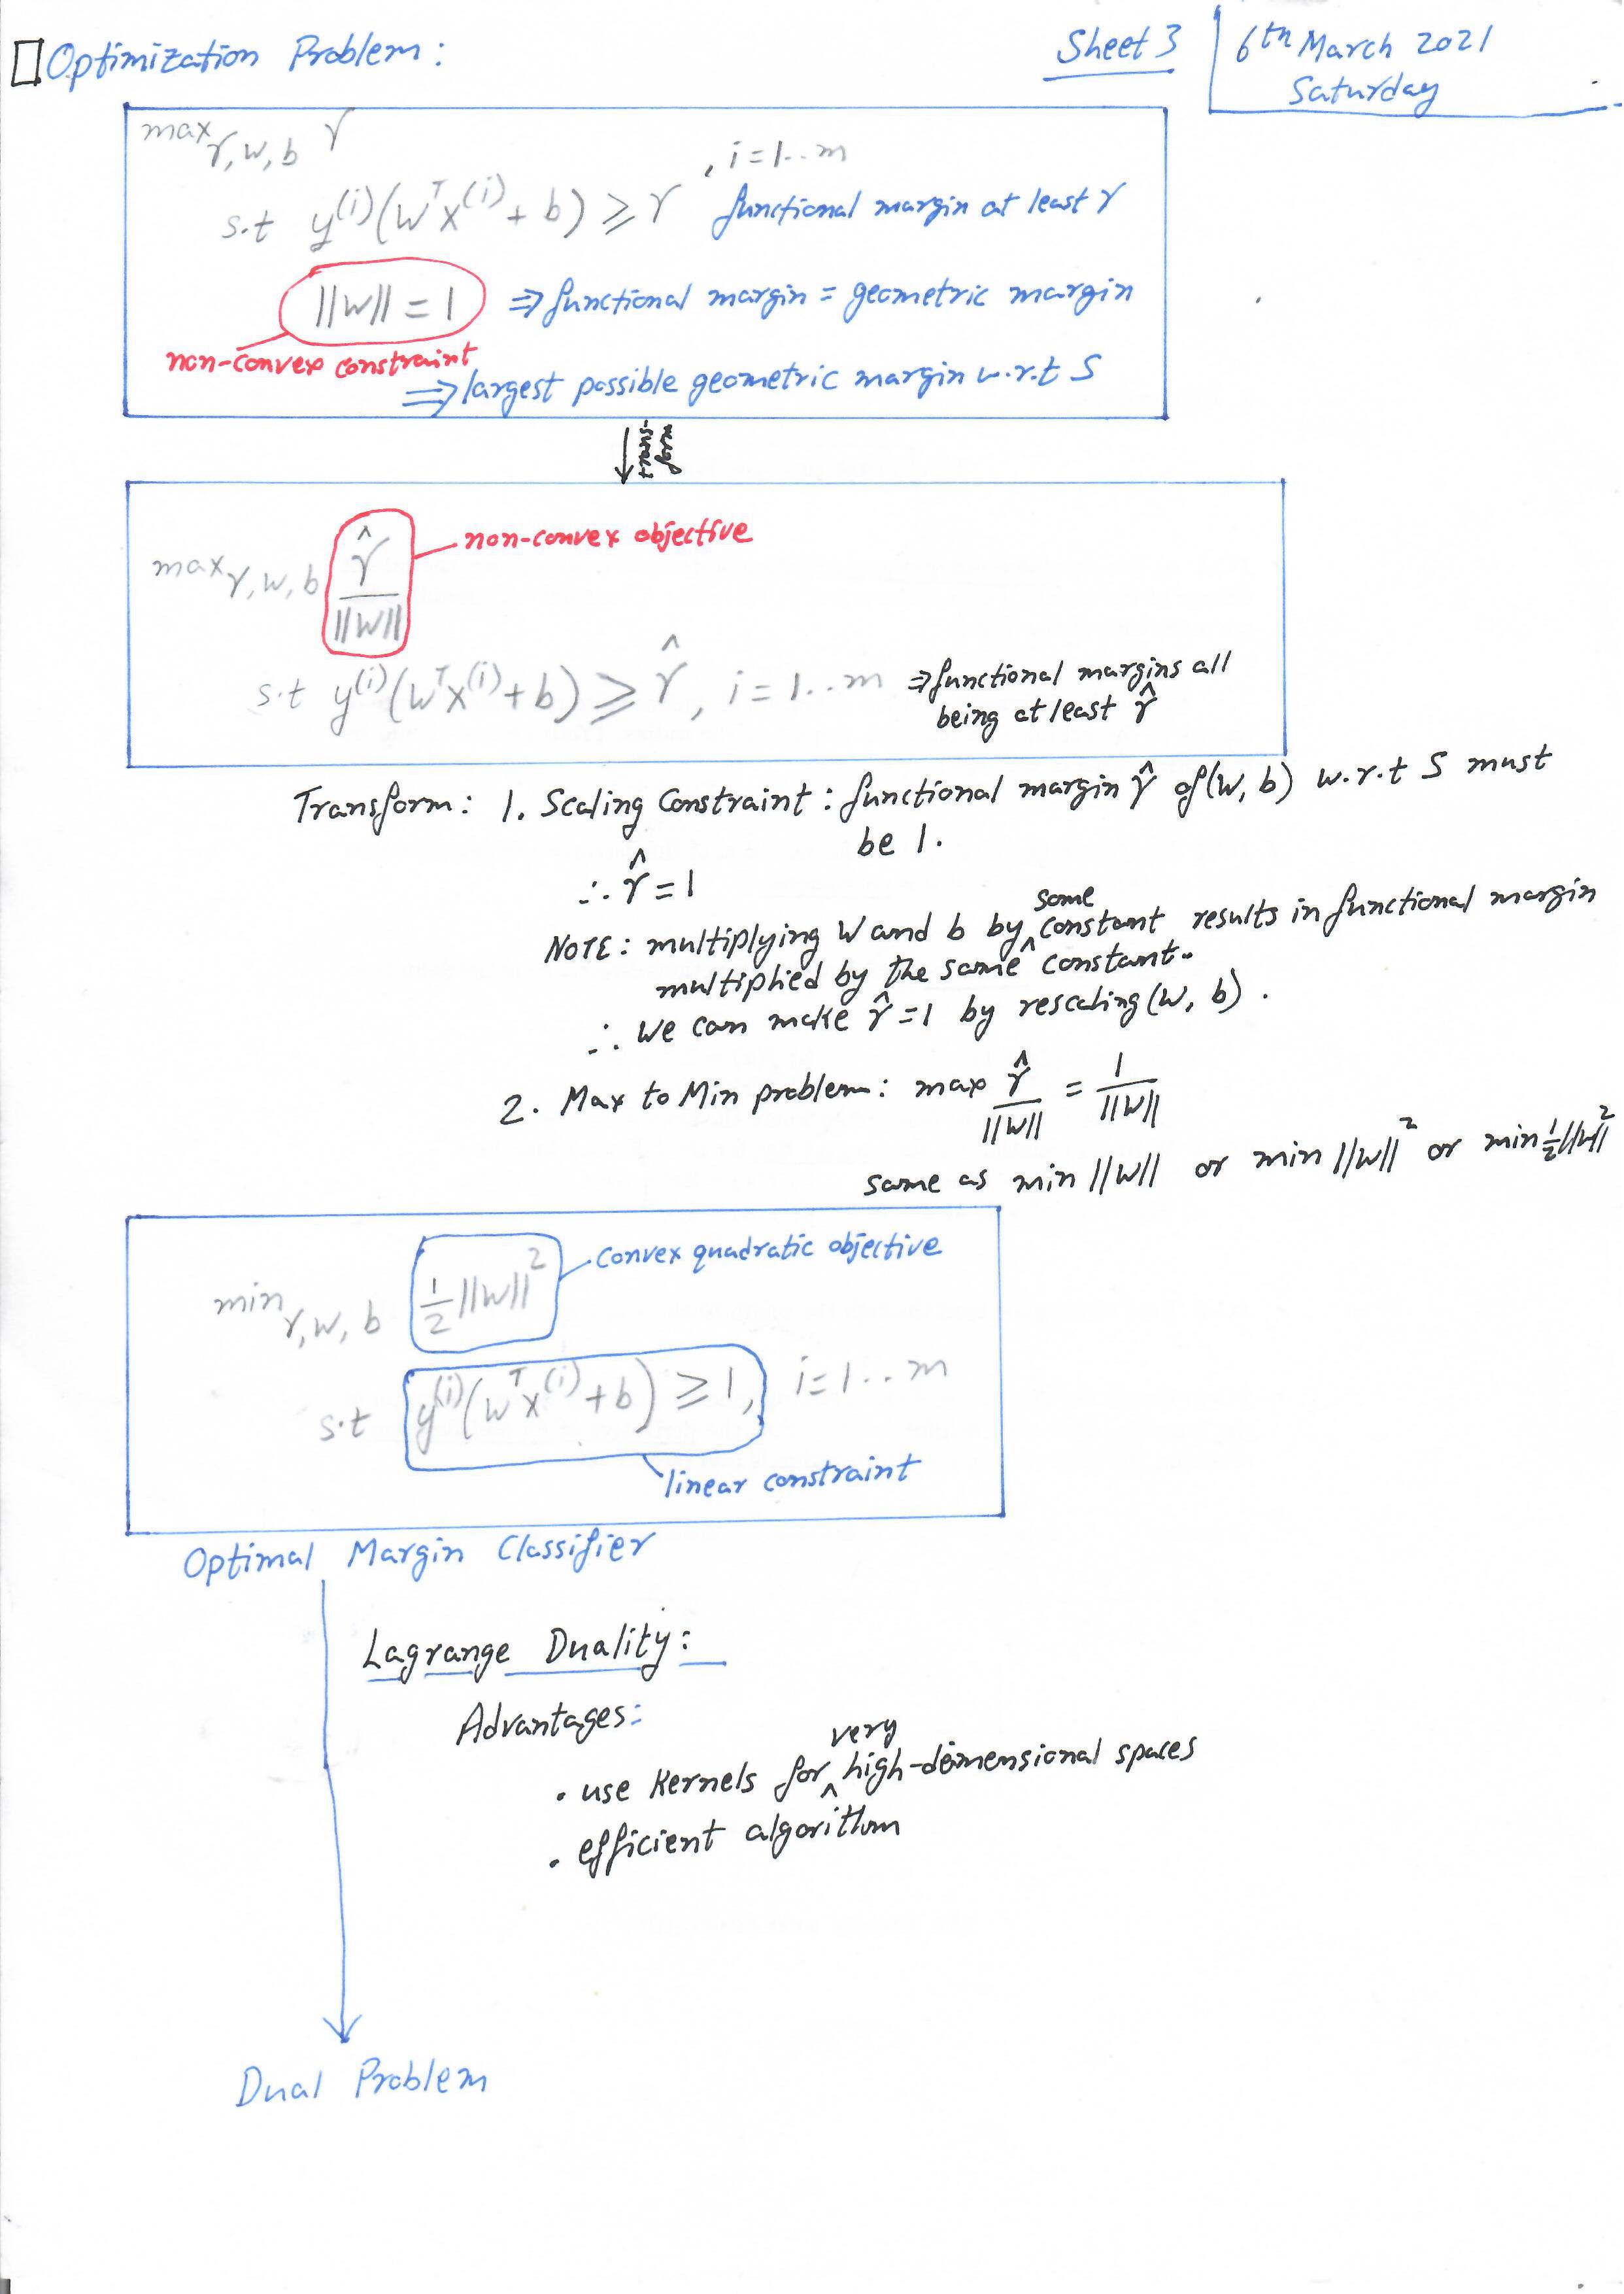 Optimization Problem:
Sheet 3
6th March 2021
Saturday
max γ, w, b γ
, i = 1..m
s.t y^(i)(w^T x^(i) + b) ≥ γ functional margin at least γ
||w|| = 1 ⇒ functional margin = geometric margin
non-convex constraint
⇒ largest possible geometric margin w.r.t S
trans-
form
non-convex objective
max γ, w, b γ̂ / ||w||
s.t y^(i)(w^T x^(i) + b) ≥ γ̂, i = 1..m ⇒ functional margins all
being at least γ̂
Transform: 1. Scaling Constraint: functional margin γ̂ of (w, b) w.r.t S must
be 1.
∴ γ̂ = 1
NOTE: multiplying w and b by some constant results in functional margin
multiplied by the same constant.
∴ we can make γ̂ = 1 by rescaling (w, b).
2. Max to Min problem: max γ̂ / ||w|| = 1 / ||w||
same as min ||w|| or min ||w||² or min ½||w||²
convex quadratic objective
min γ, w, b ½ ||w||²
s.t y^(i)(w^T x^(i) + b) ≥ 1, i = 1..m
linear constraint
Optimal Margin Classifier
Lagrange Duality:
Advantages:
• use Kernels for very high-dimensional spaces
• efficient algorithm
Dual Problem